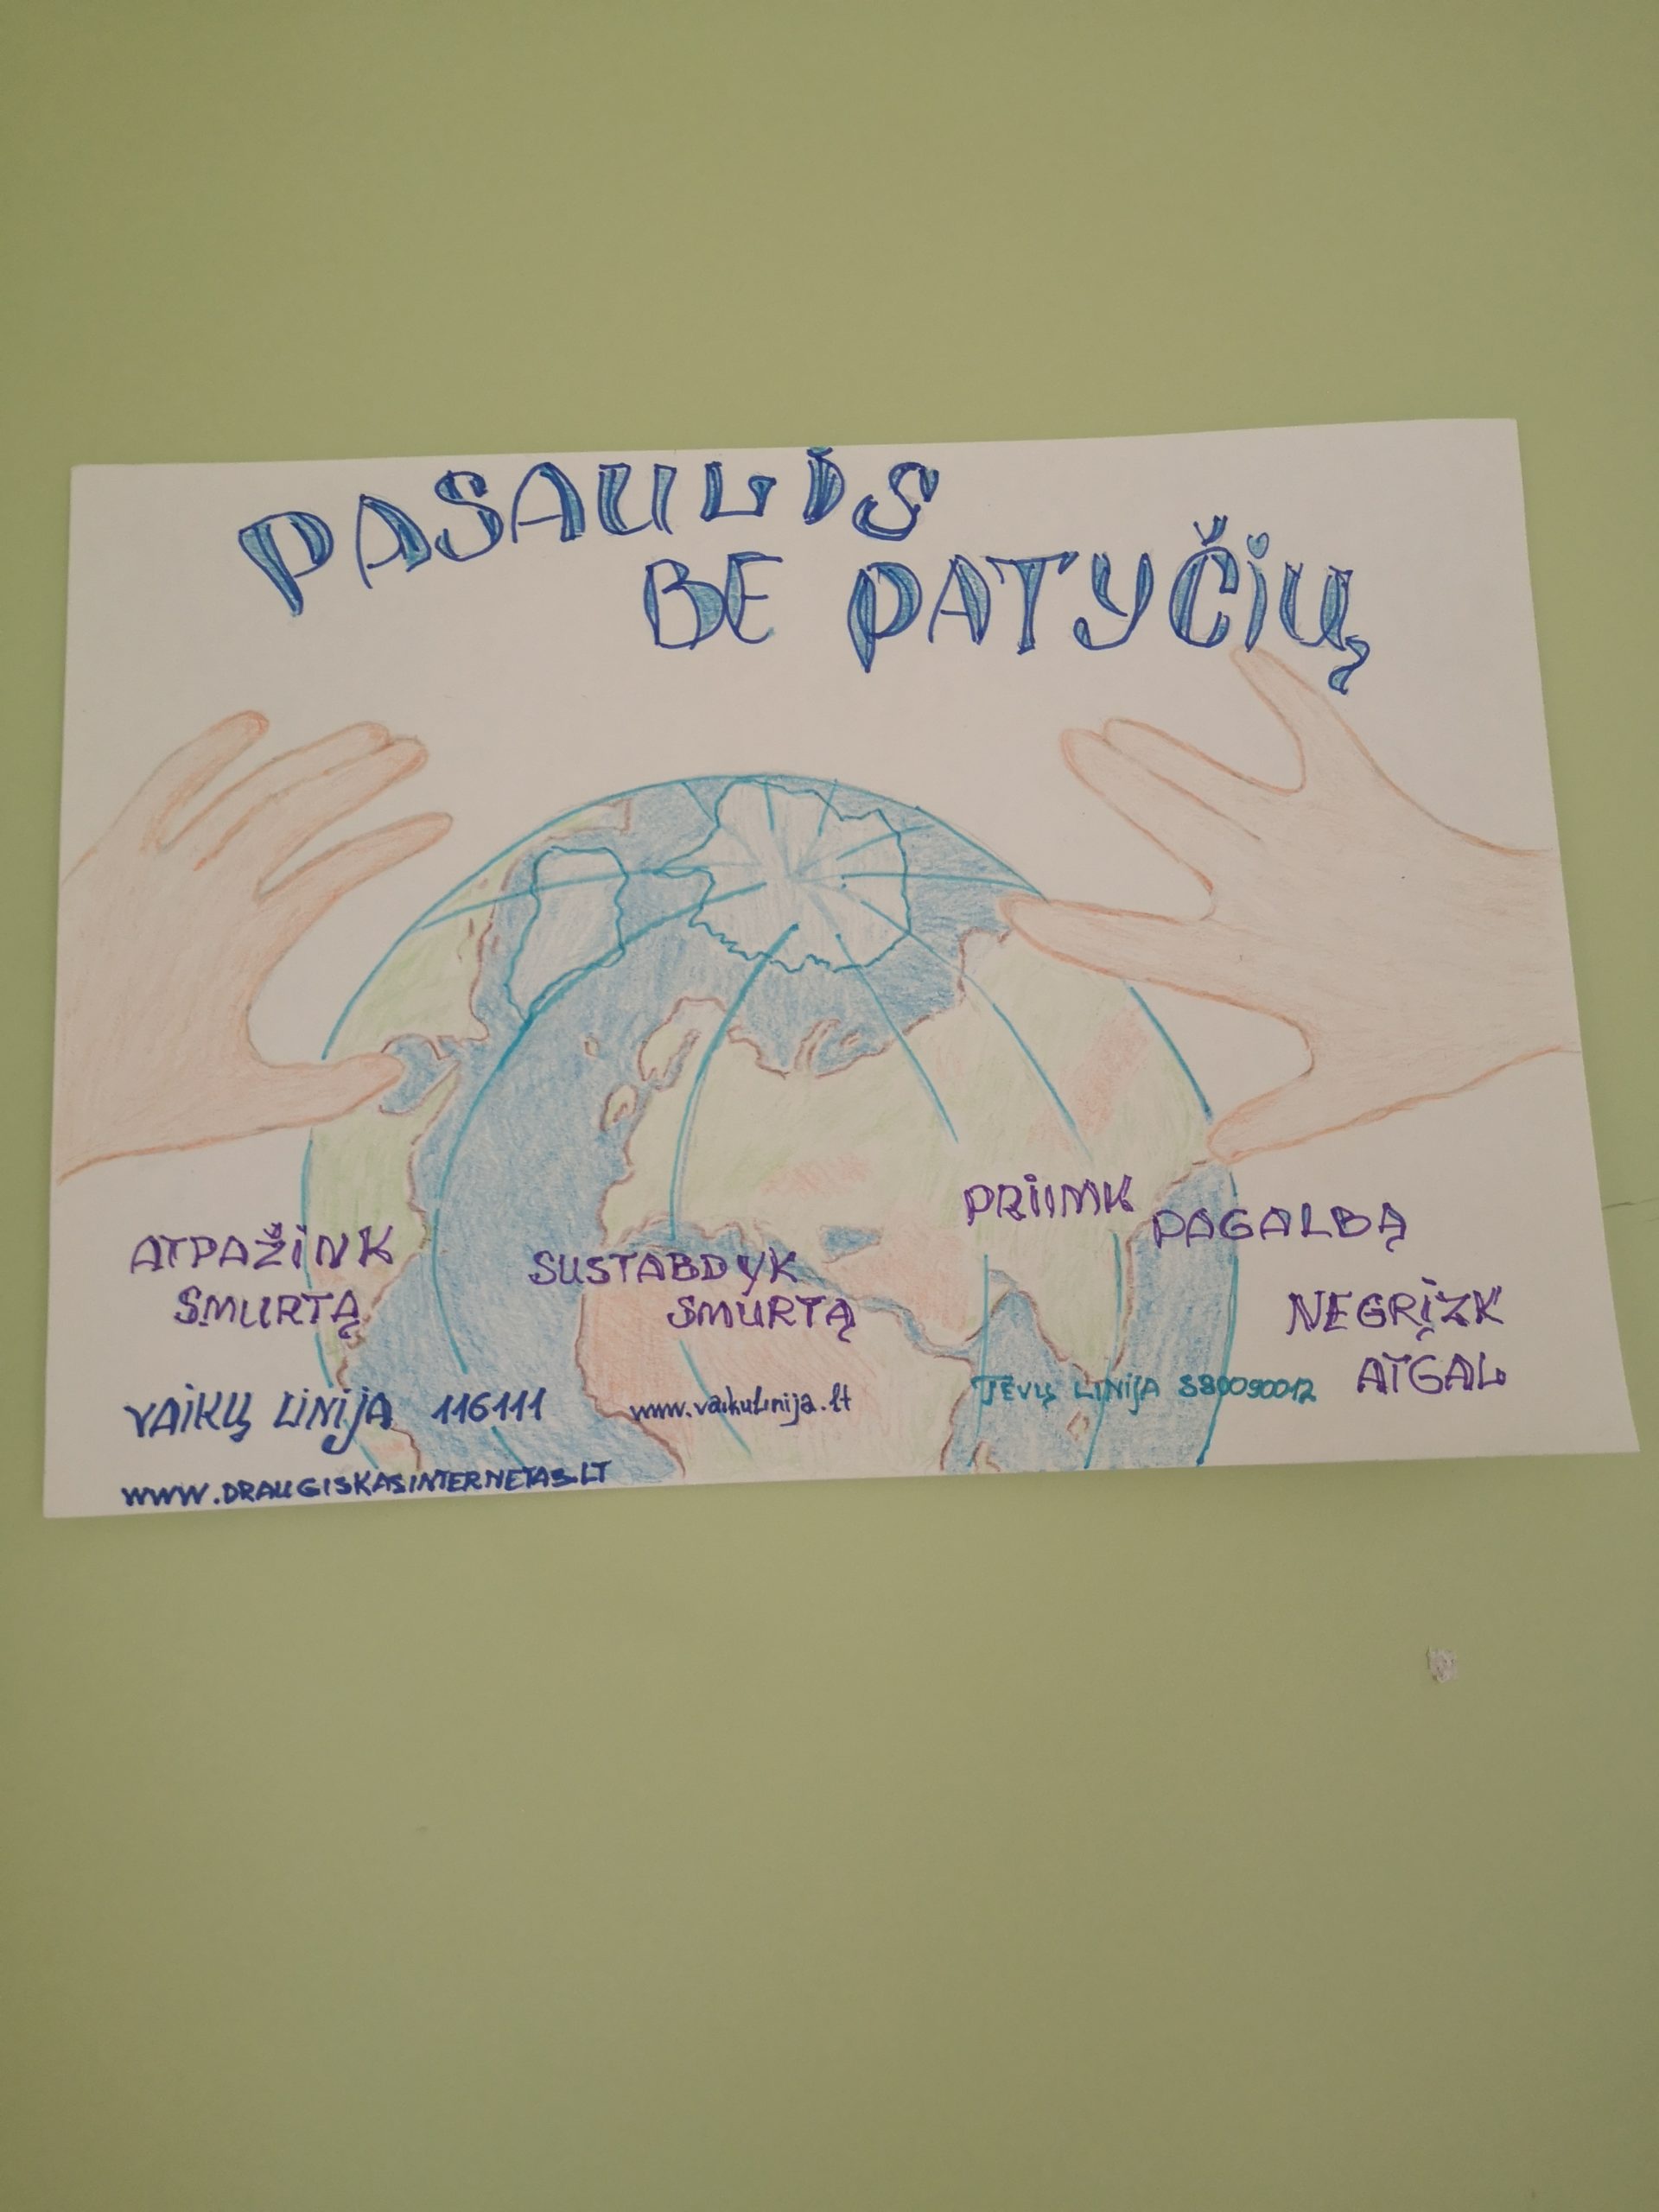 PASAULIS
BE PATYČIŲ
ATPAŽINK
SMURTĄ
SUSTABDYK
SMURTĄ
PRIIMK
PAGALBĄ
NEGRĮZK
ATGAL
VAIKŲ LINIJA 116111
www.vaikulinija.lt
TĖVŲ LINIJA 880090012
WWW.DRAUGISKASINTERNETAS.LT